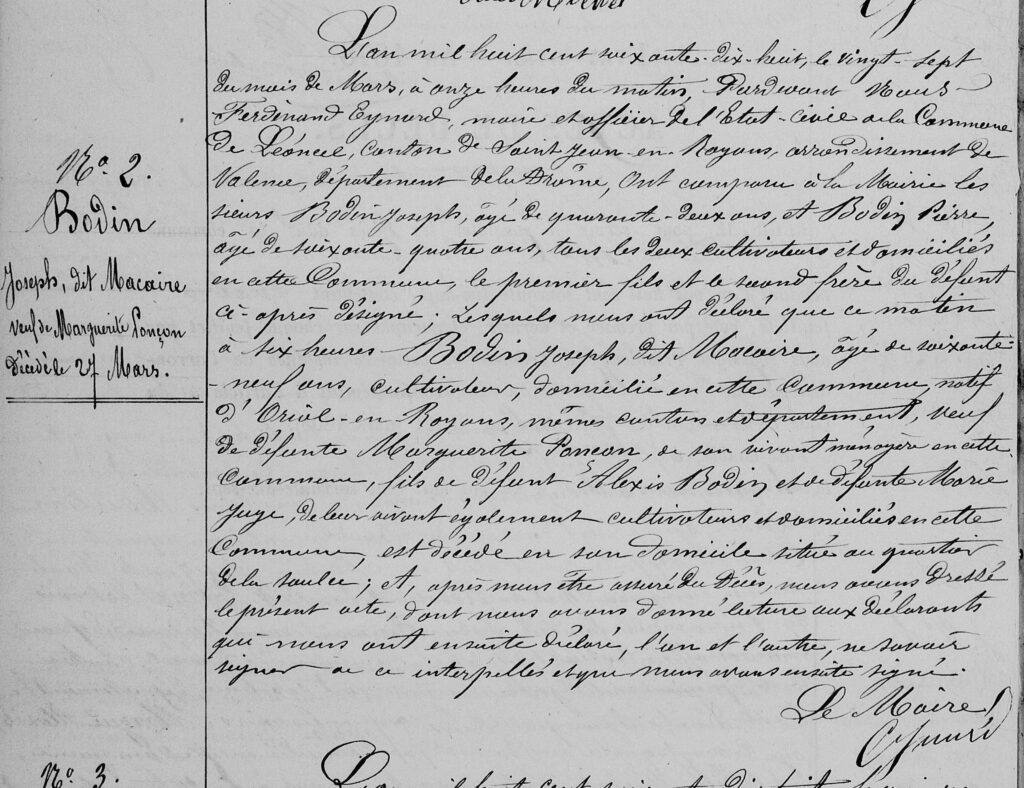 N.o 2.
Bodin
Joseph, dit Macaire
veuf de Marguerite Ponçon
Décédé le 27 Mars.
L'an mil huit cent soixante-dix-huit, le vingt-sept
du mois de Mars, à onze heures du matin, Pardevant Nous
Ferdinand Eynard, maire et officier de l'Etat-civil de la Commune
de Léoncel, canton de Saint Jean-en-Royans, arrondissement de
Valence, département de la Drôme, Ont comparu à la Mairie les
sieurs Bodin Joseph, âgé de quarante-deux ans, et Bodin Pierre,
âgé de soixante-quatre ans, tous les deux cultivateurs et domiciliés
en cette Commune, le premier fils et le second frère du défunt
ci-après désigné; Lesquels nous ont déclaré que ce matin
à six heures Bodin Joseph, dit Macaire, âgé de soixante-
-neuf ans, cultivateur, domicilié en cette Commune, natif
d'Oriol-en-Royans, mêmes canton et département, veuf
de défunte Marguerite Ponçon, de son vivant ménagère en cette
Commune, fils de défunt Alexis Bodin et de défunte Marie
Juge, de leur vivant également cultivateurs et domiciliés en cette
Commune, est décédé en son domicile situé au quartier
de la saulée; et, après nous être assuré du Décès, nous avons dressé
le présent acte, dont nous avons donné lecture aux déclarants
qui nous ont ensuite déclaré, l'un et l'autre, ne savoir
signer de ce interpellés et que nous avons ensuite signé.
Le Maire
Eynard
N.o 3.